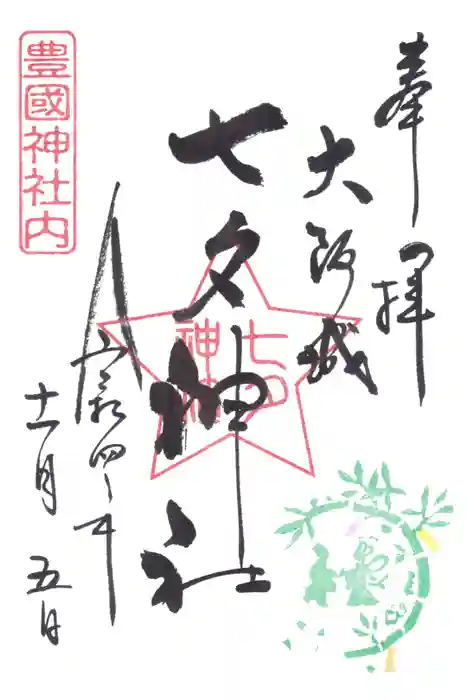 奉拝
大阪城
七夕神社
七夕
神社
豊國神社内
令和四年
十一月五日